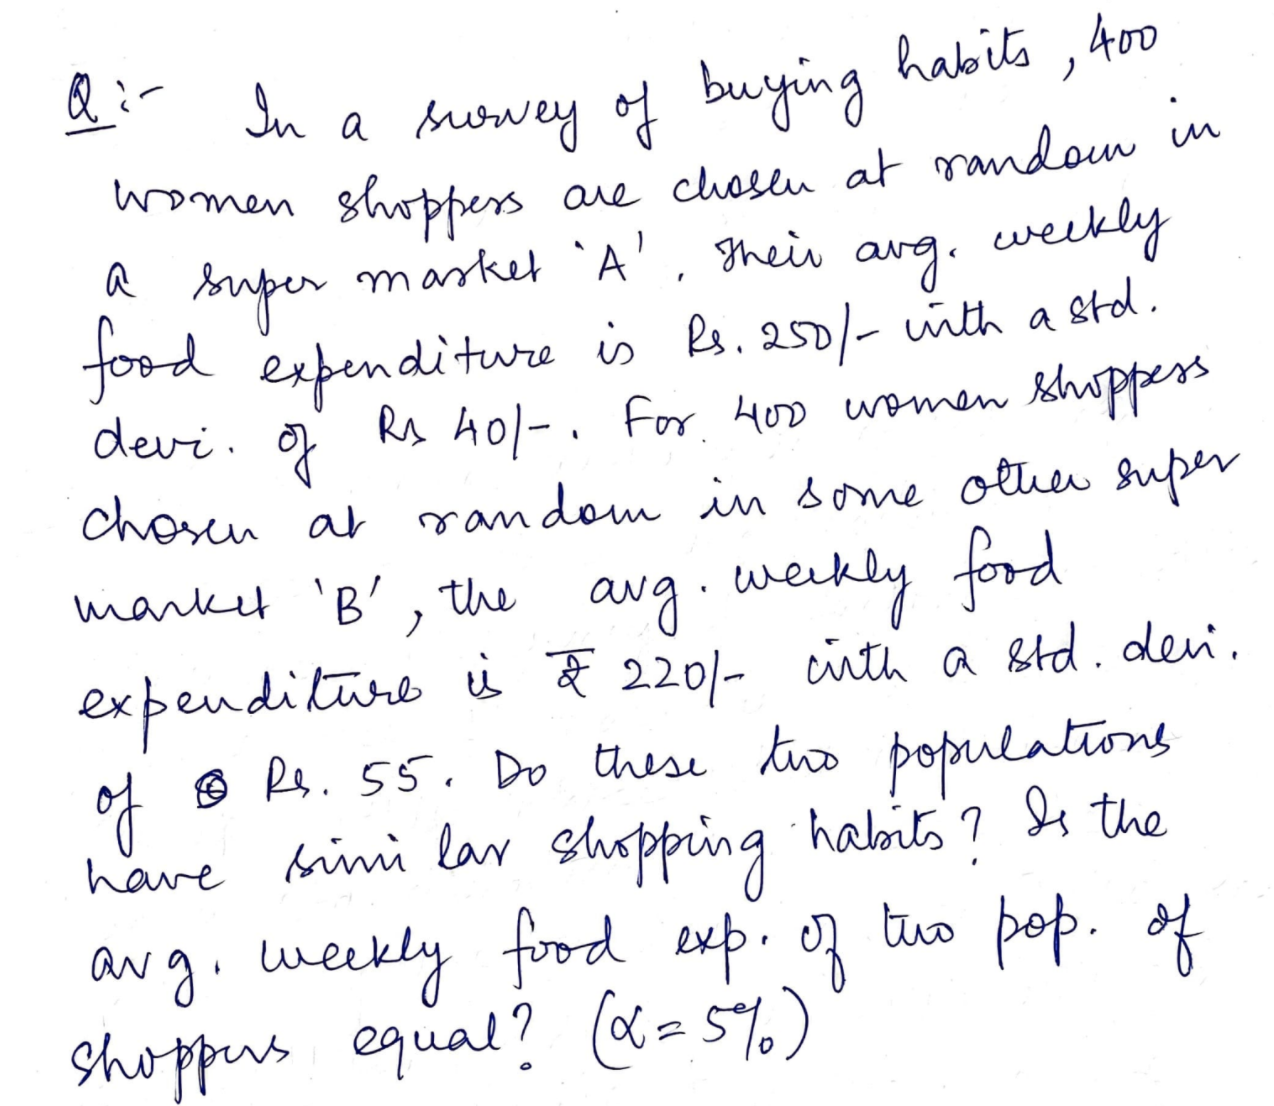 Q:- In a survey of buying habits, 400
women shoppers are chosen at random in
a super market 'A'. Their avg. weekly
food expenditure is Rs. 250/- with a std.
devi. of Rs 40/-. For 400 women shoppers
chosen at random in some other super
market 'B', the avg. weekly food
expenditure is ₹ 220/- with a std. devi.
of Rs. 55. Do these two populations
have similar shopping habits? Is the
avg. weekly food exp. of two pop. of
shoppers equal? (α = 5%)